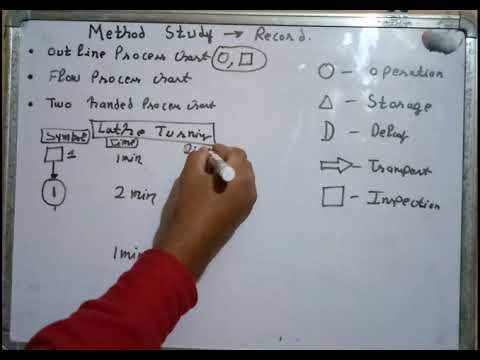 Method Study → Record.
• Outline Process chart (○, □)
• Flow Process chart
• Two handed Process chart
Symbol Lathe Turning
Time
1 1min
1 2 min
1 min
○ - operation
△ - Storage
D - Delay
⇨ - Transport
□ - Inspection